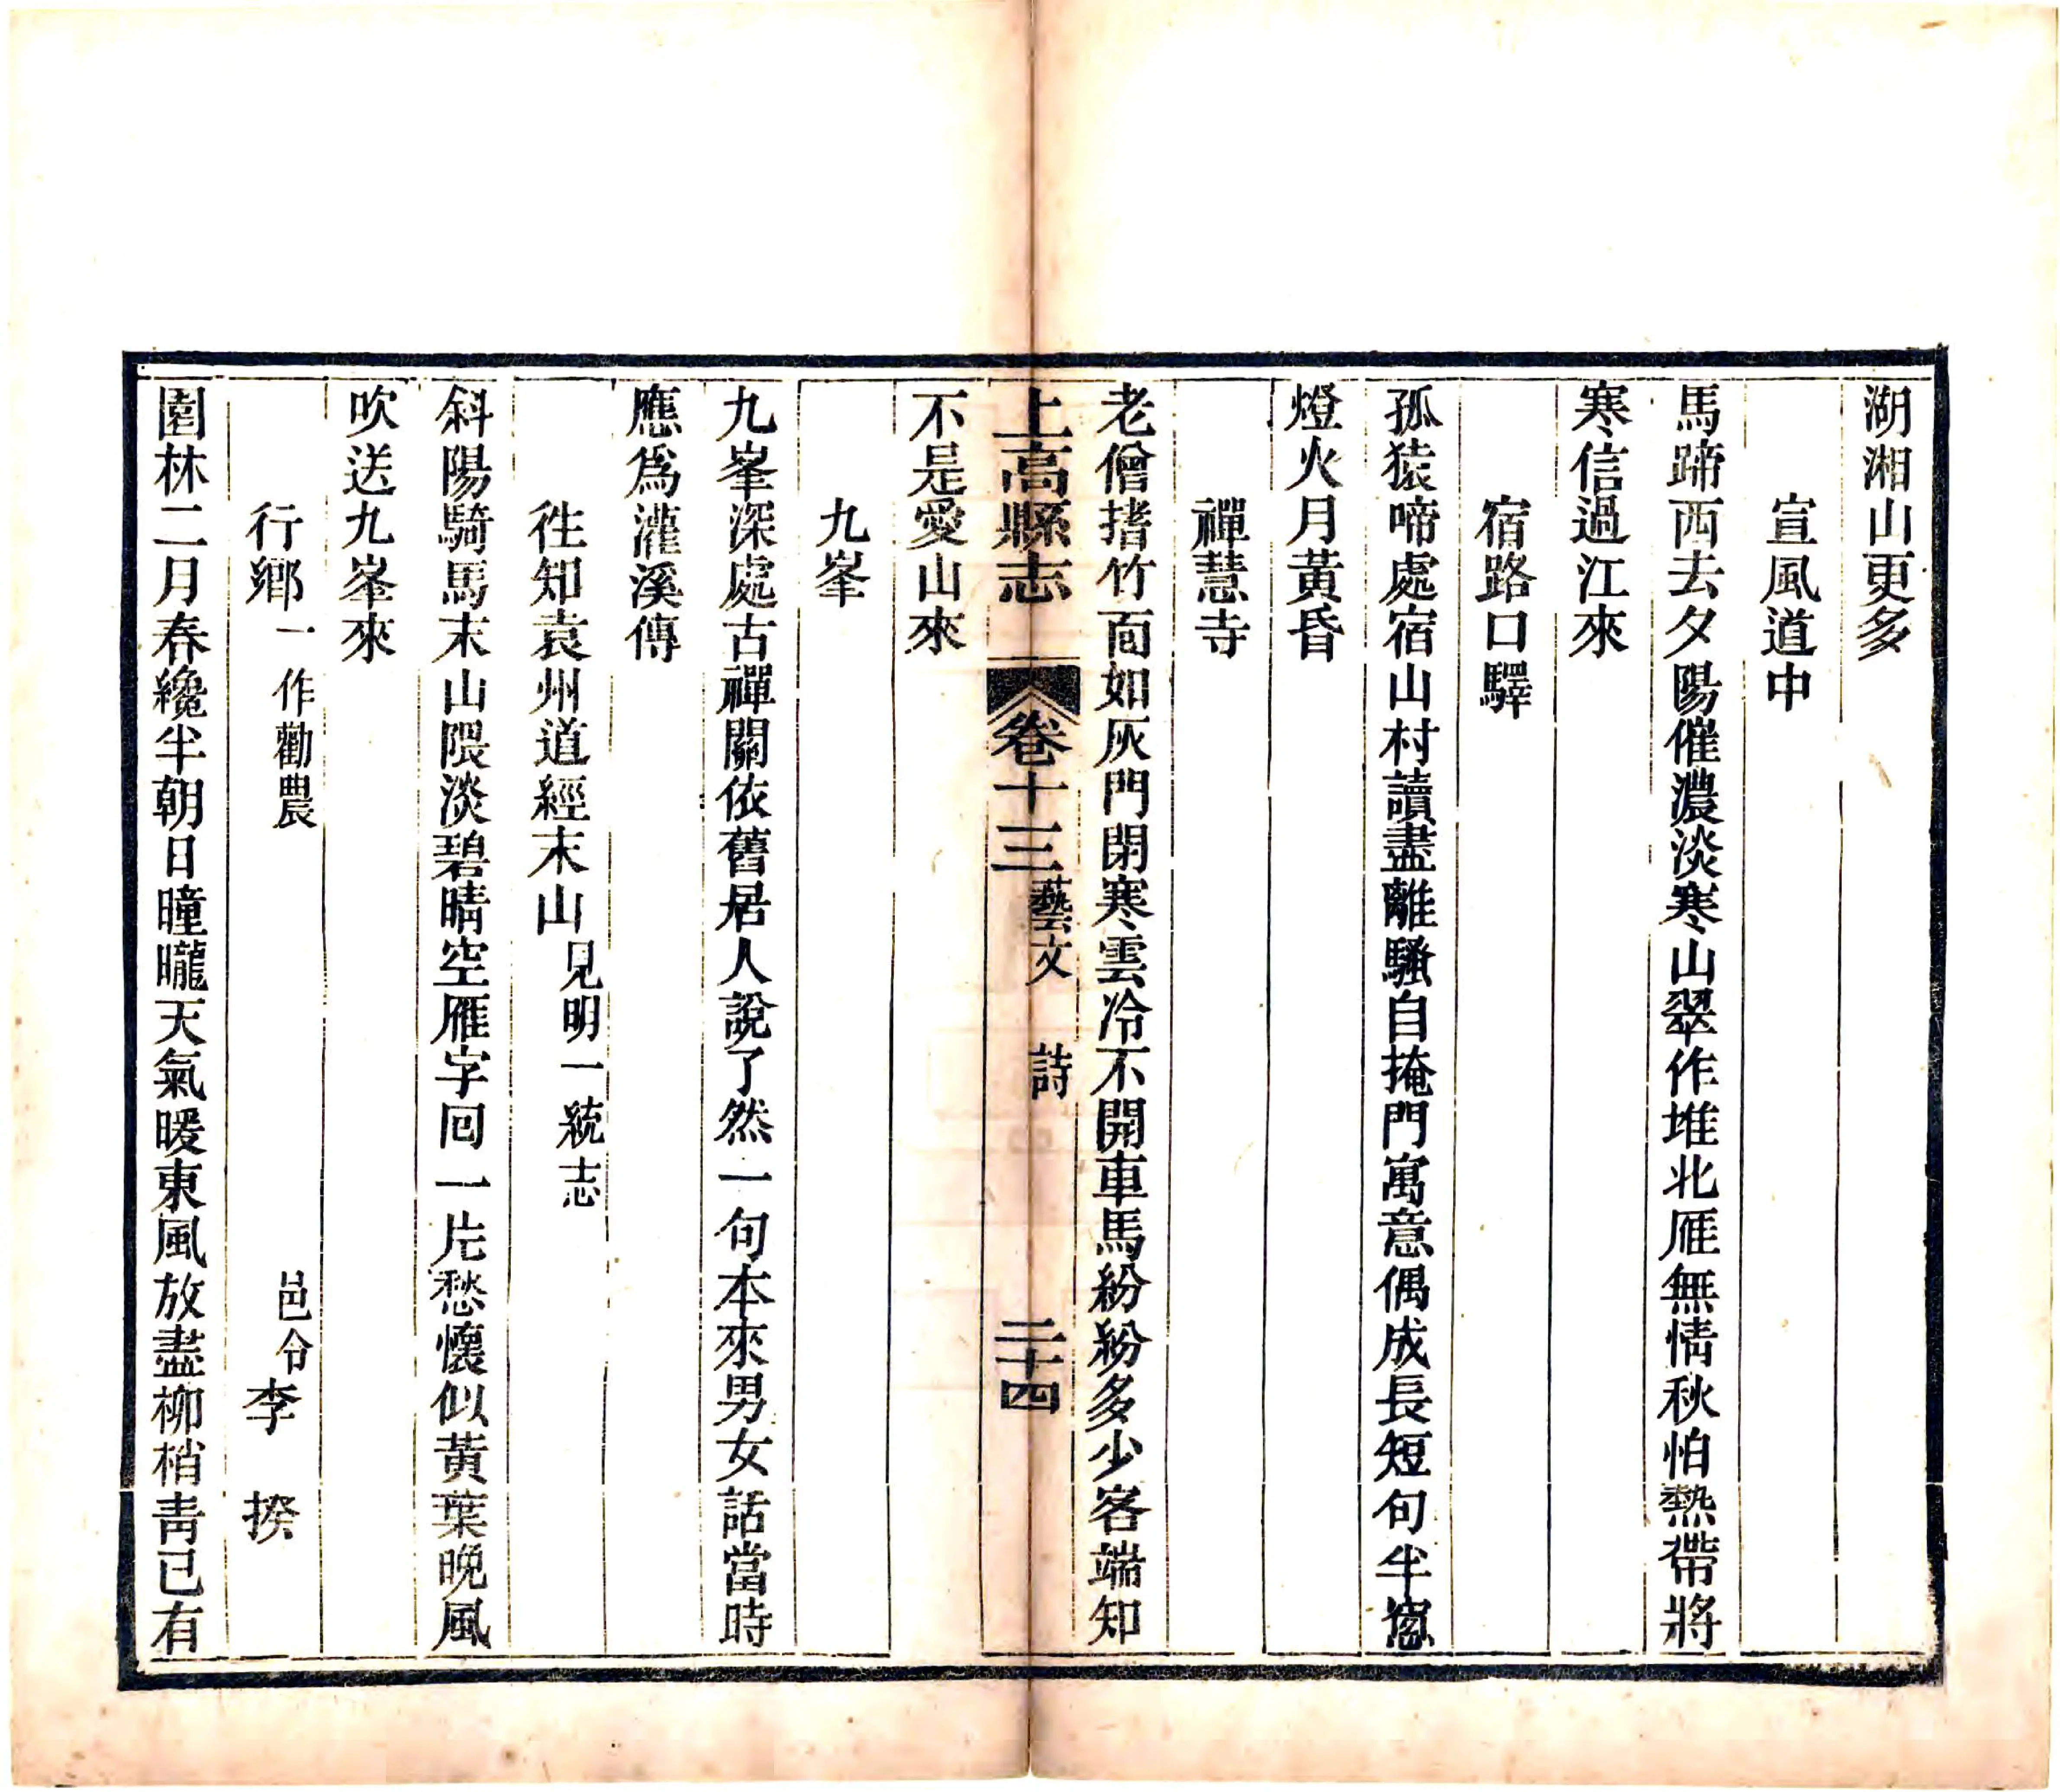 湖湘山更多
宣風道中
馬蹄西去夕陽催濃淡寒山翠作堆北雁無情秋怕熱帶將
寒信過江來
宿路口驛
孤猿啼處宿山村讀盡離騷自掩門寓意偶成長短句半窻
燈火月黃昏
禪慧寺
老僧揩竹面如灰門閉寒雲冷不開車馬紛紛多少客端知
上高縣志 卷十三 藝文 詩 二十四
不是愛山來
九峯
九峯深處古禪關依舊居人說了然一句本來男女話當時
應爲灌溪傳
徃知袁州道經末山見明一統志
斜陽騎馬末山隈淡碧晴空雁字回一片愁懷似黃葉晚風
吹送九峯來
行鄉一作勸農 邑令李 揆
園林二月春纔半朝日曈曨天氣暖東風放盡柳梢靑已有